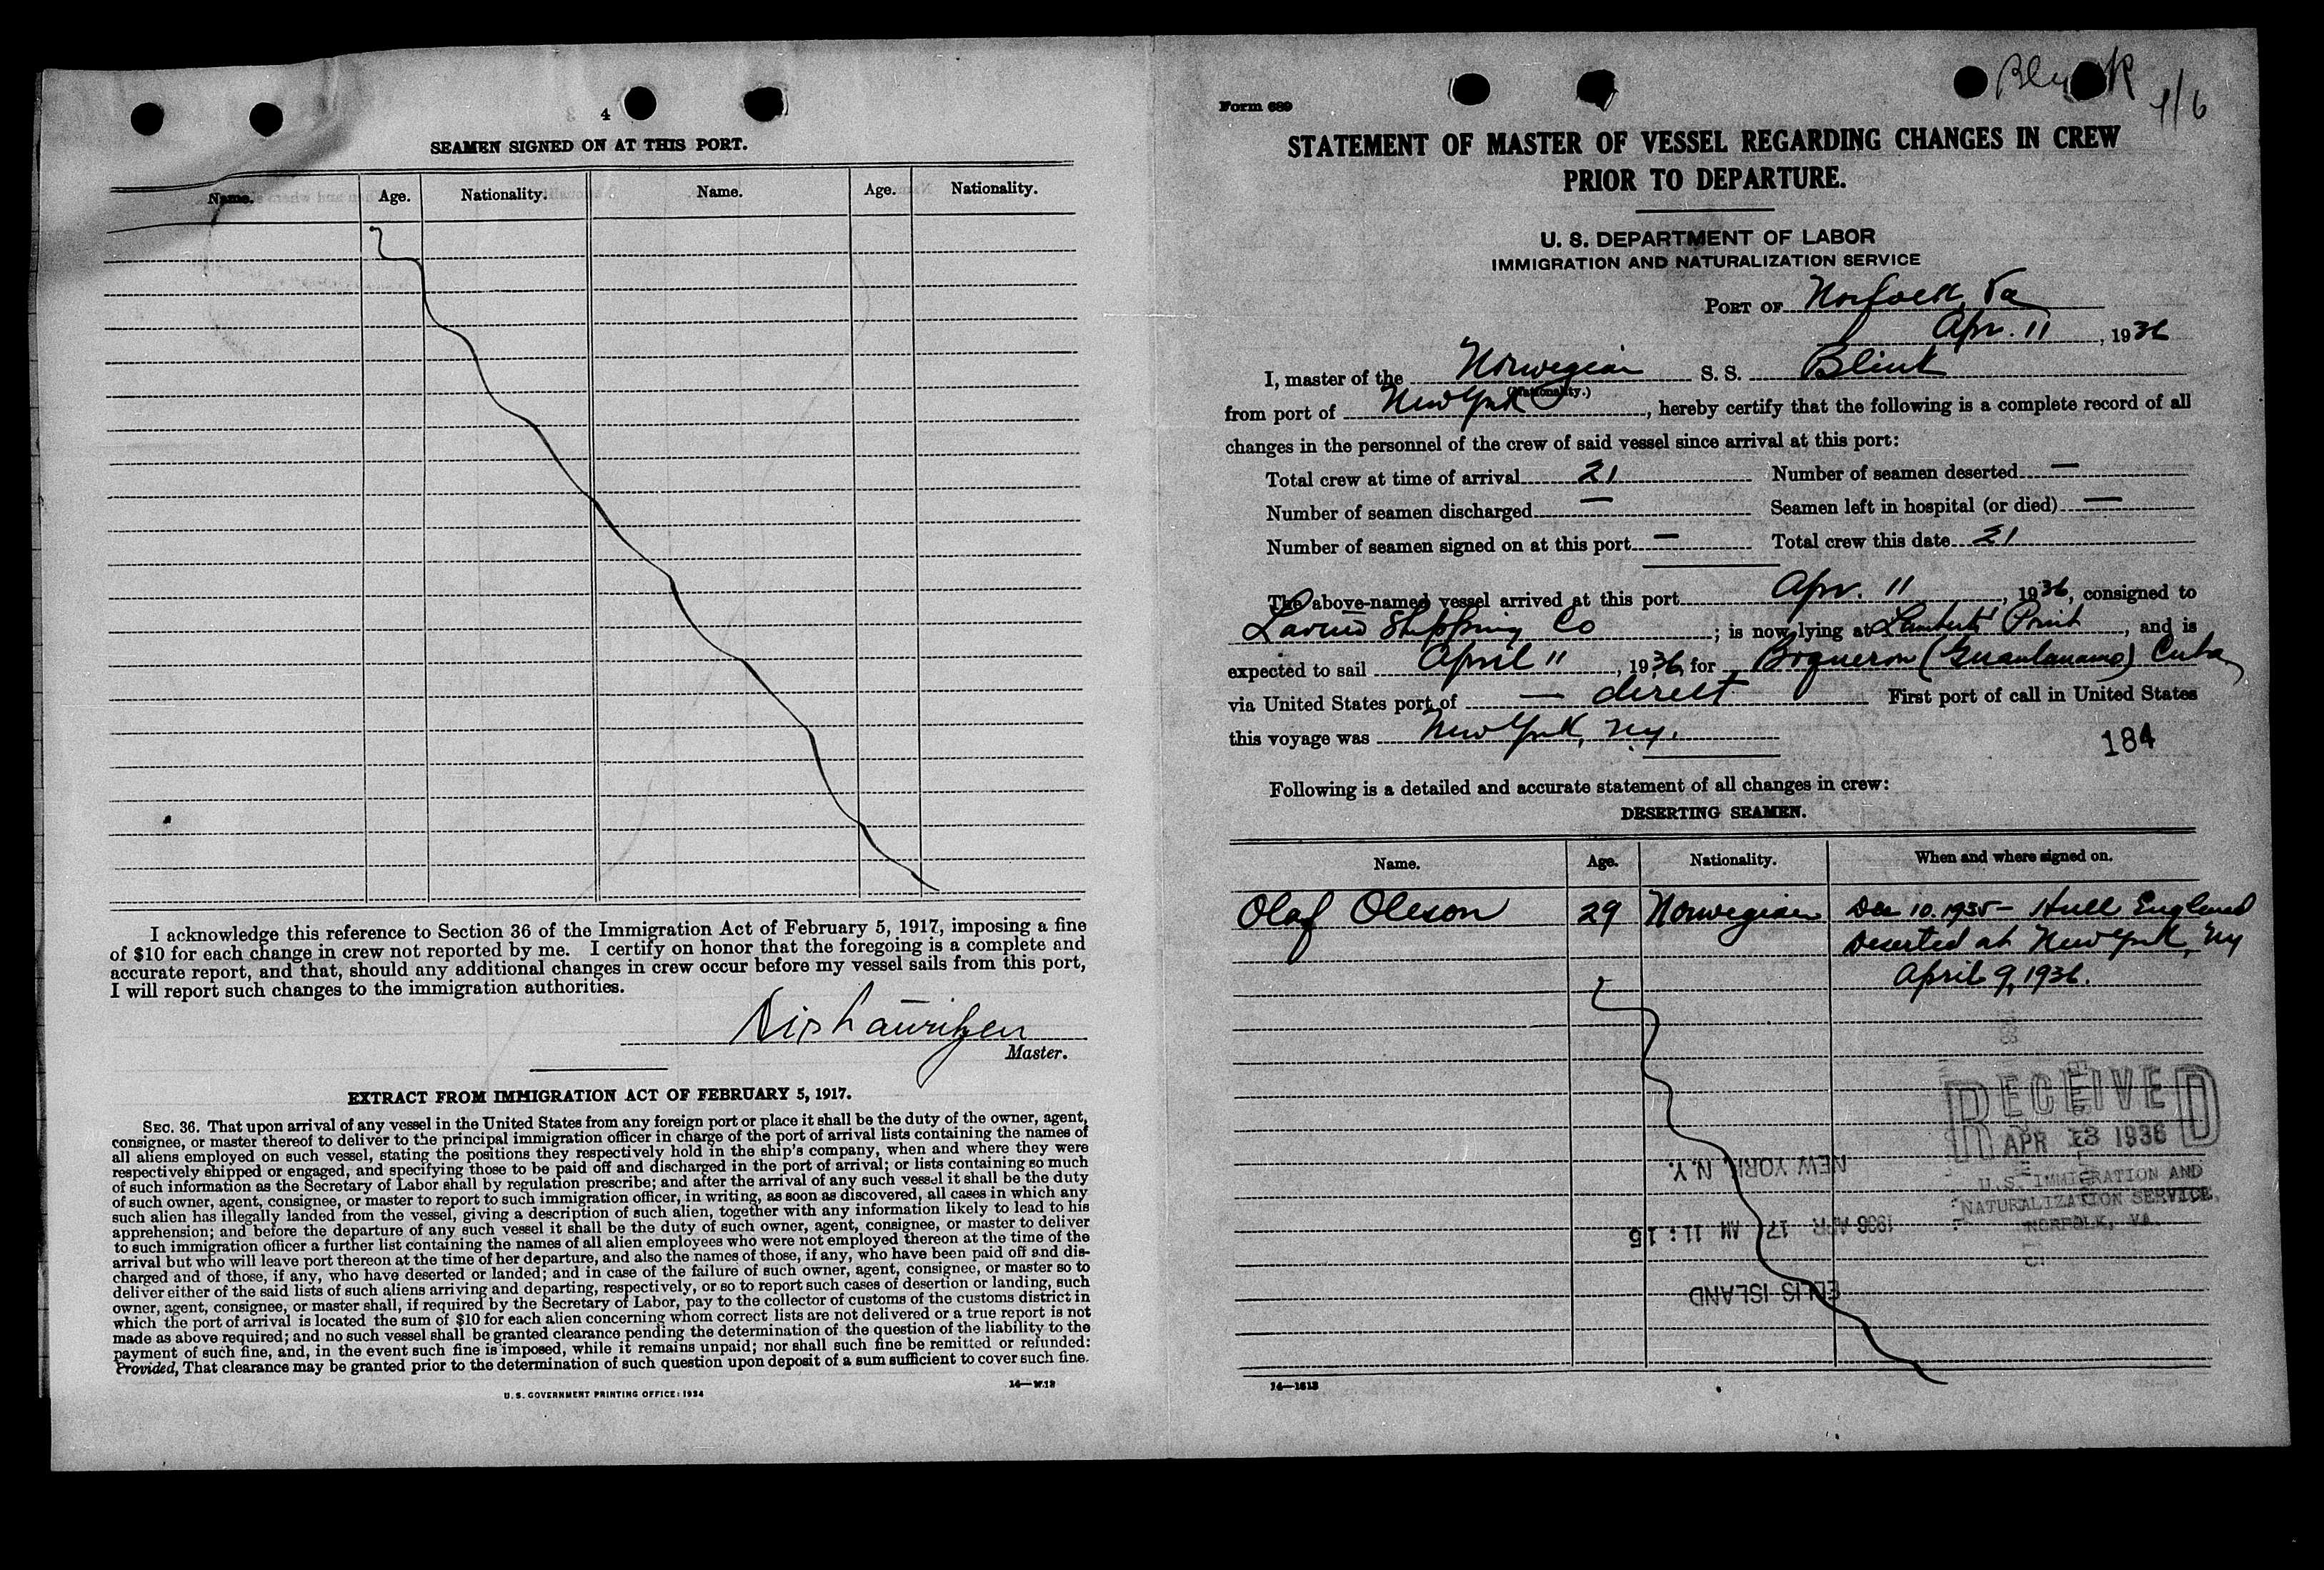 4
SEAMEN SIGNED ON AT THIS PORT.
Name. Age. Nationality. Name. Age. Nationality.
I acknowledge this reference to Section 36 of the Immigration Act of February 5, 1917, imposing a fine
of $10 for each change in crew not reported by me. I certify on honor that the foregoing is a complete and
accurate report, and that, should any additional changes in crew occur before my vessel sails from this port,
I will report such changes to the immigration authorities.
Master.
EXTRACT FROM IMMIGRATION ACT OF FEBRUARY 5, 1917.
SEC. 36. That upon arrival of any vessel in the United States from any foreign port or place it shall be the duty of the owner, agent,
consignee, or master thereof to deliver to the principal immigration officer in charge of the port of arrival lists containing the names of
all aliens employed on such vessel, stating the positions they respectively hold in the ship's company, when and where they were
respectively shipped or engaged, and specifying those to be paid off and discharged in the port of arrival; or lists containing so much
of such information as the Secretary of Labor shall by regulation prescribe; and after the arrival of any such vessel it shall be the duty
of such owner, agent, consignee, or master to report to such immigration officer, in writing, as soon as discovered, all cases in which any
such alien has illegally landed from the vessel, giving a description of such alien, together with any information likely to lead to his
apprehension; and before the departure of any such vessel it shall be the duty of such owner, agent, consignee, or master to deliver
to such immigration officer a further list containing the names of all alien employees who were not employed thereon at the time of the
arrival but who will leave port thereon at the time of her departure, and also the names of those, if any, who have been paid off and dis-
charged and of those, if any, who have deserted or landed; and in case of the failure of such owner, agent, consignee, or master so to
deliver either of the said lists of such aliens arriving and departing, respectively, or so to report such cases of desertion or landing, such
owner, agent, consignee, or master shall, if required by the Secretary of Labor, pay to the collector of customs of the customs district in
which the port of arrival is located the sum of $10 for each alien concerning whom correct lists are not delivered or a true report is not
made as above required; and no such vessel shall be granted clearance pending the determination of the question of the liability to the
payment of such fine, and, in the event such fine is imposed, while it remains unpaid; nor shall such fine be remitted or refunded:
Provided, That clearance may be granted prior to the determination of such question upon deposit of a sum sufficient to cover such fine.
U. S. GOVERNMENT PRINTING OFFICE: 1934
Form 689
STATEMENT OF MASTER OF VESSEL REGARDING CHANGES IN CREW
PRIOR TO DEPARTURE.
U. S. DEPARTMENT OF LABOR
IMMIGRATION AND NATURALIZATION SERVICE
PORT OF Norfolk, Va
Apr. 11, 1936
I, master of the Norwegian S. S. Blink
(Nationality.)
from port of New York, hereby certify that the following is a complete record of all
changes in the personnel of the crew of said vessel since arrival at this port:
Total crew at time of arrival 21 Number of seamen deserted —
Number of seamen discharged — Seamen left in hospital (or died) —
Number of seamen signed on at this port — Total crew this date 21
The above-named vessel arrived at this port Apr. 11, 1936, consigned to
Lavino Shipping Co; is now lying at Lamberts Point, and is
expected to sail April 11, 1936, for Boqueron (Guantanamo) Cuba
via United States port of — direct First port of call in United States
this voyage was New York, NY.
184
Following is a detailed and accurate statement of all changes in crew:
DESERTING SEAMEN.
Name. Age. Nationality. When and where signed on.
Olaf Oleson 29 Norwegian Dec 10. 1935 - Hull England
Deserted at New York, NY
April 9, 1936.
RECEIVED
APR 13 1936
U.S. IMMIGRATION AND
NATURALIZATION SERVICE,
NORFOLK, VA.
NEW YORK, N.Y.
1936 APR 17 AM 11:15
ELLIS ISLAND
14—1613